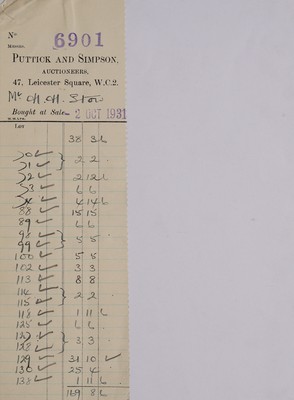 No 6901
MESSRS.
PUTTICK AND SIMPSON,
AUCTIONEERS,
47, Leicester Square, W.C.2.
Mr
Bought at Sale 2 OCT 1931
Lot
38 3
70 ✓
71 ✓ } 2 2
72 ✓ 2 12
73 ✓ 6 6
4 14
88 ✓ 15 15
89 ✓ 6 6
98 ✓
99 ✓ } 5 5
100 ✓ 5 5
102 ✓ 3 3
113 ✓ 8 8
114 ✓
115 ✓ } 2 2
118 ✓ 1 11 6
125 ✓ 6 6
127 ✓
128 ✓ } 3 3
129 ✓ 31 10 ✓
130 ✓ 25 4
138 ✓ 1 11 6
169 8 6